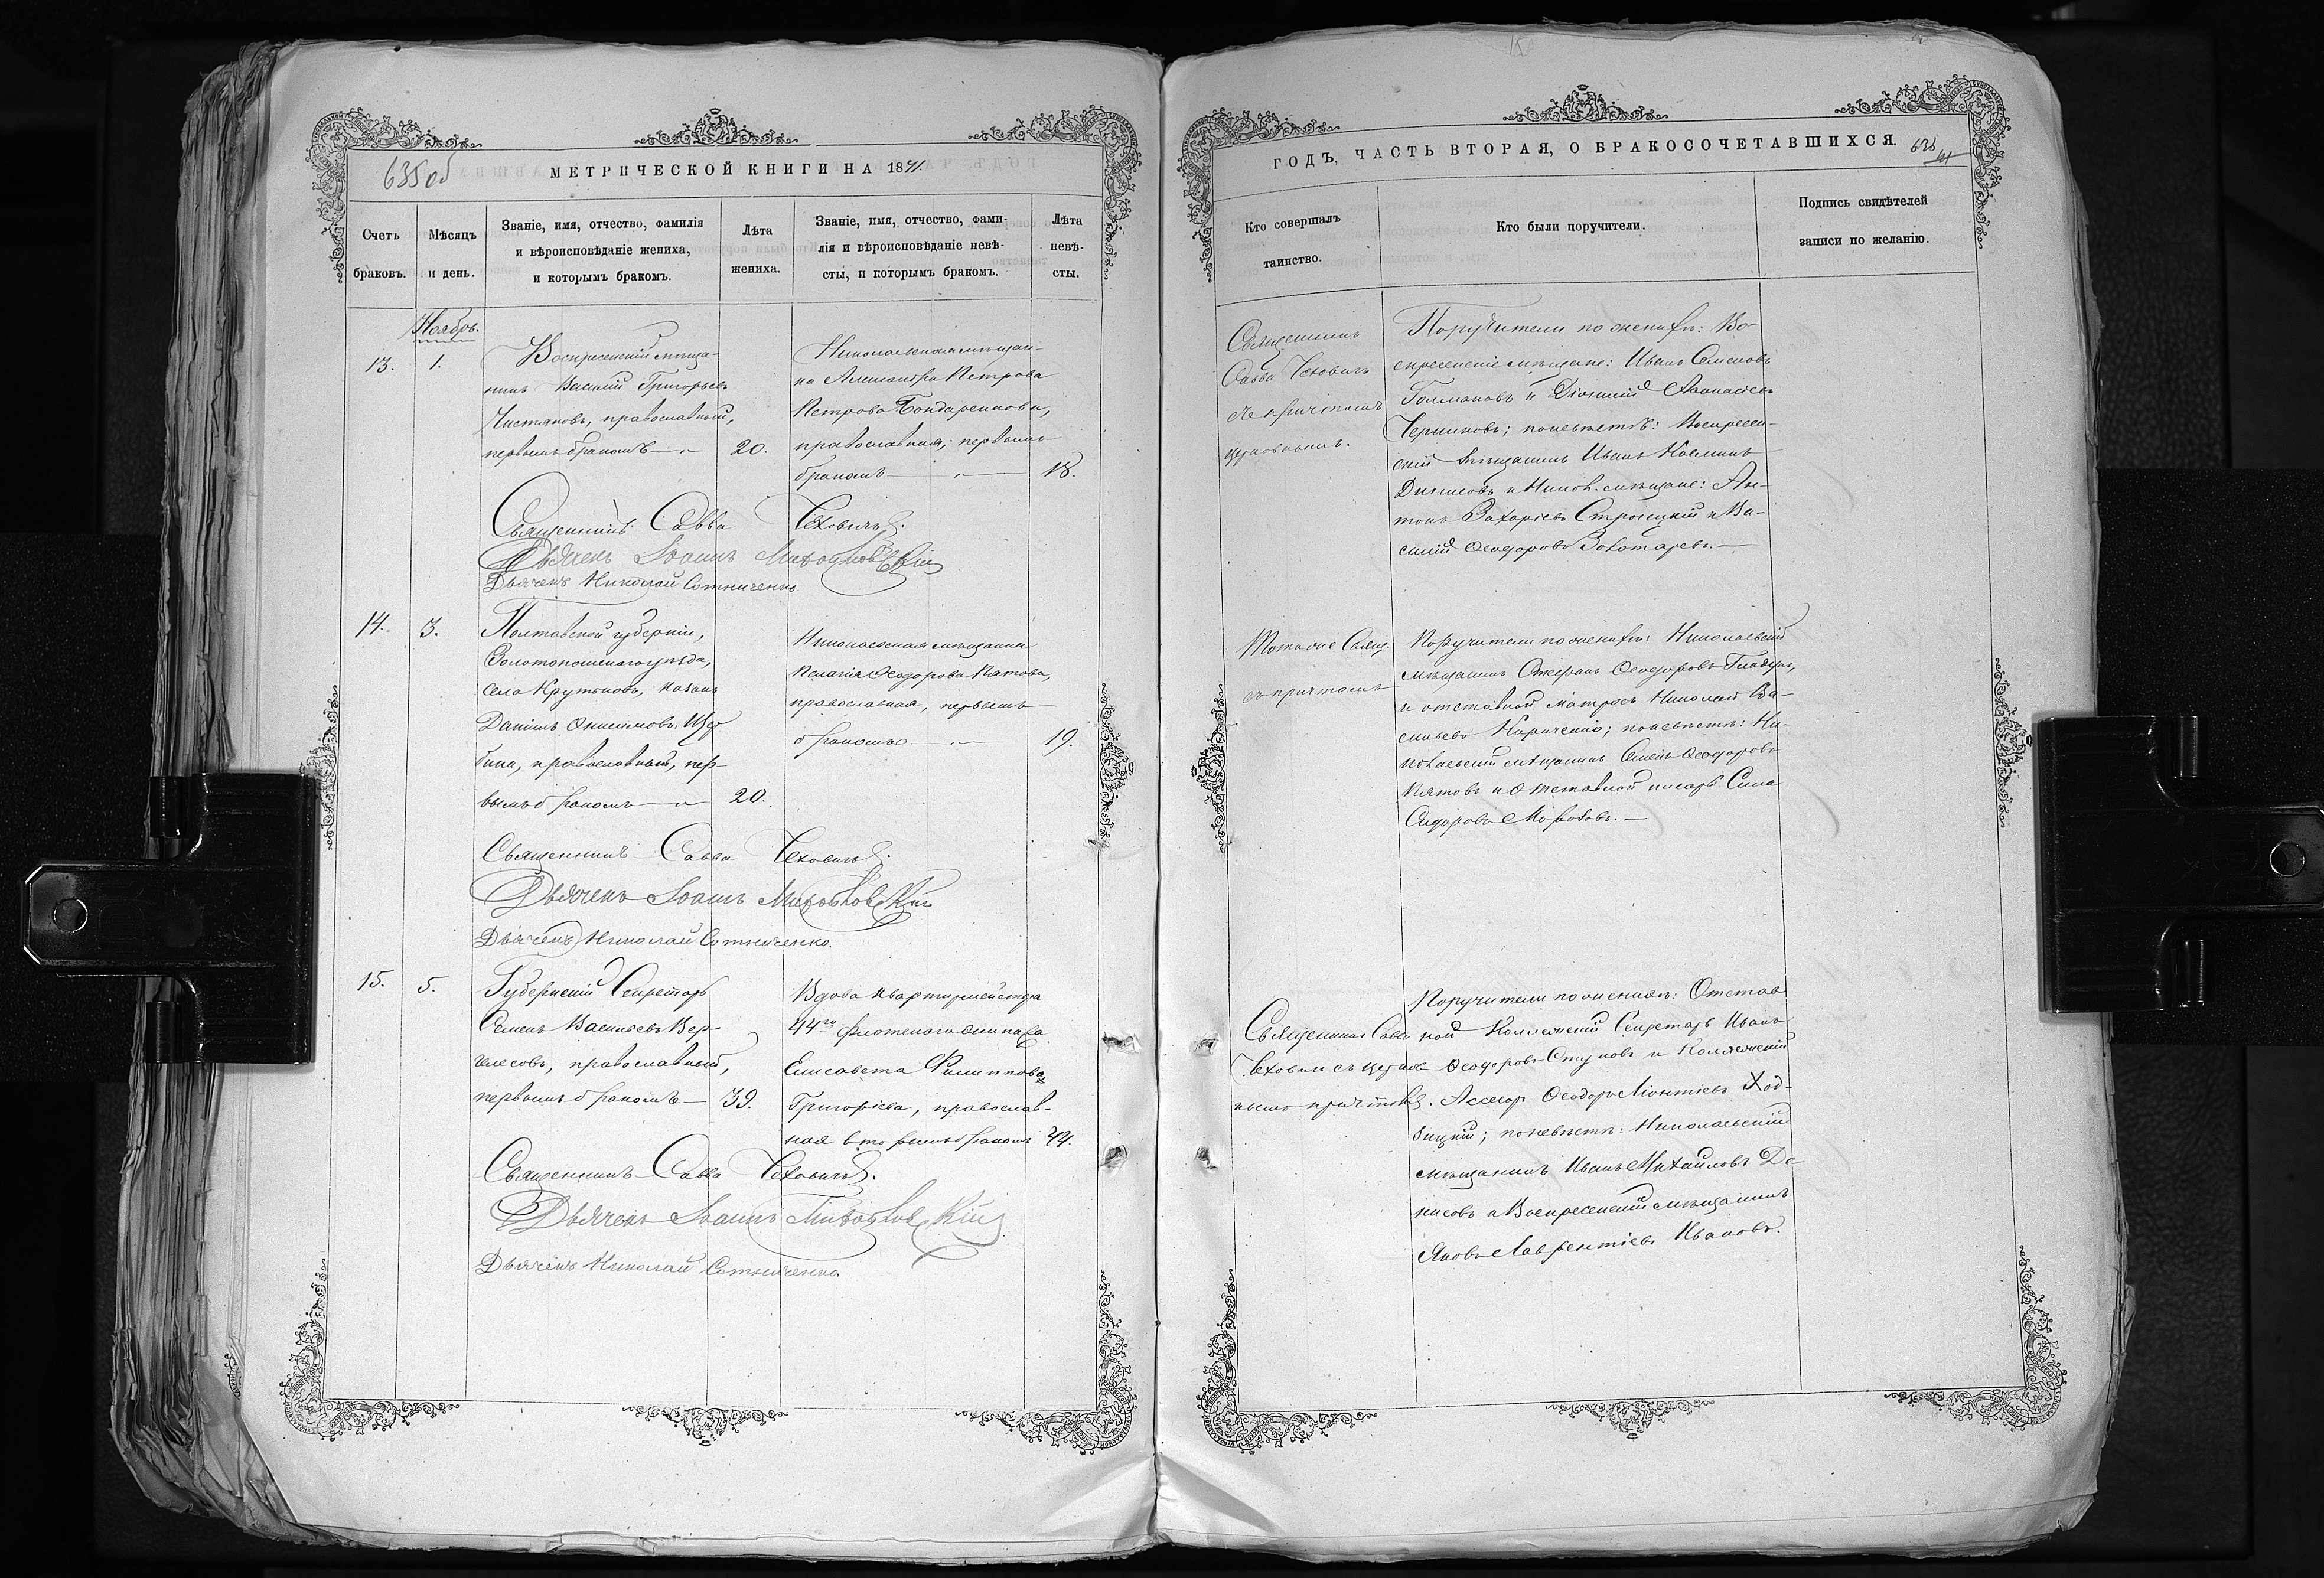 635об
МЕТРИЧЕСКОЙ КНИГИ НА 1871.
Счетъ
браковъ.
Мѣсяцъ
и день.
Званіе, имя, отчество, фамилія
и вѣроисповѣданіе жениха,
и которымъ бракомъ.
Лѣта
жениха.
Званіе, имя, отчество, фами-
лія и вѣроисповѣданіе невѣ-
сты, и которымъ бракомъ.
Лѣта
невѣ-
сты.
Ноябрь.
13.
1.
Воскресенскій мѣща-
нинъ Василій Григорьевъ
Чистяковъ, православный,
первымъ бракомъ
20.
Николаевская мѣщан-
ка Александра Петрова
Петрова Бондаренкова,
православная, первымъ
бракомъ
18.
Священникъ Савва Чеховичъ.
Дьячекъ Іоаннъ
Дьячекъ Николай Сотниченко.
14.
3.
Полтавской губерніи,
Золотоношскаго уѣзда,
села Крутьковъ, казакъ
Даніилъ Онисимовъ
православный, пер-
вымъ бракомъ
20.
Николаевская мѣщанка
Пелагія Ѳеодорова Пятова,
православная, первымъ
бракомъ
19.
Священникъ Савва Чеховичъ.
Дьячекъ Іоаннъ
Дьячекъ Николай Сотниченко.
15.
5.
Губернскій Секретарь
Семенъ Васильевъ Вер-
православный,
первымъ бракомъ
39.
Вдова квартирмейстера
44го флотскаго экипажа
Елисавета Филиппова
Григорьева, православ-
ная вторымъ бракомъ
44.
Священникъ Савва Чеховичъ.
Дьячекъ Іоаннъ
Дьячекъ Николай Сотниченко.
ГОДЪ, ЧАСТЬ ВТОРАЯ, О БРАКОСОЧЕТАВШИХСЯ.
Кто совершалъ
таинство.
Кто были поручители.
Подпись свидѣтелей
записи по желанію.
Священникъ
Савва Чеховичъ
съ причтомъ
церковнымъ.
Поручители по женихѣ: Во-
скресенскіе мѣщане: Иванъ Семеновъ
и Діонисій Аѳанасіевъ
Черниковъ; по невѣстѣ: Воскресен-
скій мѣщанинъ Иванъ Козминъ
Денисовъ и Никол. мѣщане: Ан-
тонъ Захаріевъ Строецкій и Ва-
силій Ѳеодоровъ Золотаревъ.
Тотъ же Свящ.
съ причтомъ
Поручители по женихѣ: Николаевскій
мѣщанинъ Стефанъ Ѳеодоровъ
и отставной матросъ Николай Ва-
сильевъ Кириченко; по невѣстѣ: Ни-
колаевскій мѣщанинъ Семенъ Ѳеодоровъ
Пятовъ и отставной писарь Сила
Сидоровъ Морозовъ.
Священникъ Савва
Чеховичъ съ церков-
нымъ причтомъ.
Поручители по женихѣ: Отстав-
ной Коллежскій Секретарь Иванъ
Ѳеодоровъ Ступовъ и Коллежскій
Ассесоръ Ѳеодоръ Леонтіевъ Ход-
зицкій; по невѣстѣ: Николаевскій
мѣщанинъ Иванъ Михайловъ Де-
нисовъ и Воскресенскій мѣщанинъ
Яковъ Лаврентіевъ Ивановъ.